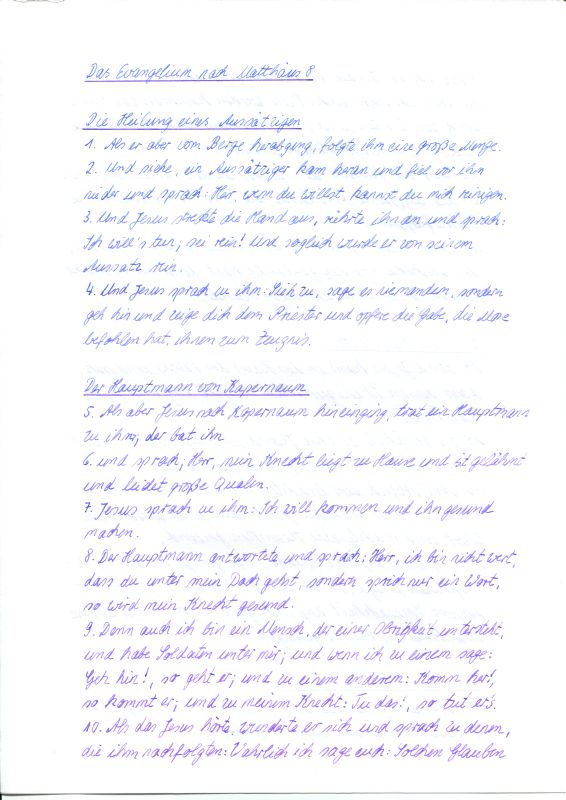 Das Evangelium nach Matthäus 8
Die Heilung eines Aussätzigen
1. Als er aber vom Berge herabging, folgte ihm eine große Menge.
2. Und siehe, ein Aussätziger kam heran und fiel vor ihm
nieder und sprach: Herr, wenn du willst, kannst du mich reinigen.
3. Und Jesus streckte die Hand aus, rührte ihn an und sprach:
Ich will's tun; sei rein! Und sogleich wurde er von seinem
Aussatz rein.
4. Und Jesus sprach zu ihm: Sieh zu, sage es niemandem, sondern
geh hin und zeige dich dem Priester und opfere die Gabe, die Mose
befohlen hat, ihnen zum Zeugnis.
Der Hauptmann von Kapernaum
5. Als aber Jesus nach Kapernaum hineinging, trat ein Hauptmann
zu ihm; der bat ihn
6. und sprach; Herr, mein Knecht liegt zu Hause und ist gelähmt
und leidet große Qualen.
7. Jesus sprach zu ihm: Ich will kommen und ihn gesund
machen.
8. Der Hauptmann antwortete und sprach: Herr, ich bin nicht wert,
dass du unter mein Dach gehst, sondern sprich nur ein Wort,
so wird mein Knecht gesund.
9. Denn auch ich bin ein Mensch, der einer Obrigkeit untersteht,
und habe Soldaten unter mir; und wenn ich zu einem sage:
Geh hin!, so geht er; und zu einem anderem: Komm her!,
so kommt er; und zu meinem Knecht: Tu das!, so tut er's.
10. Als das Jesus hörte, wunderte er sich und sprach zu denen,
die ihm nachfolgten: Wahrlich ich sage euch: Solchen Glauben